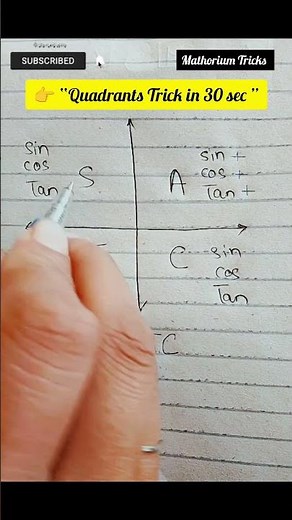 SUBSCRIBED
Mathorium Tricks
👉 "Quadrants Trick in 30 sec"
sin
cos
Tan
S
A
sin +
cos +
Tan +
C
sin
cos
Tan
C